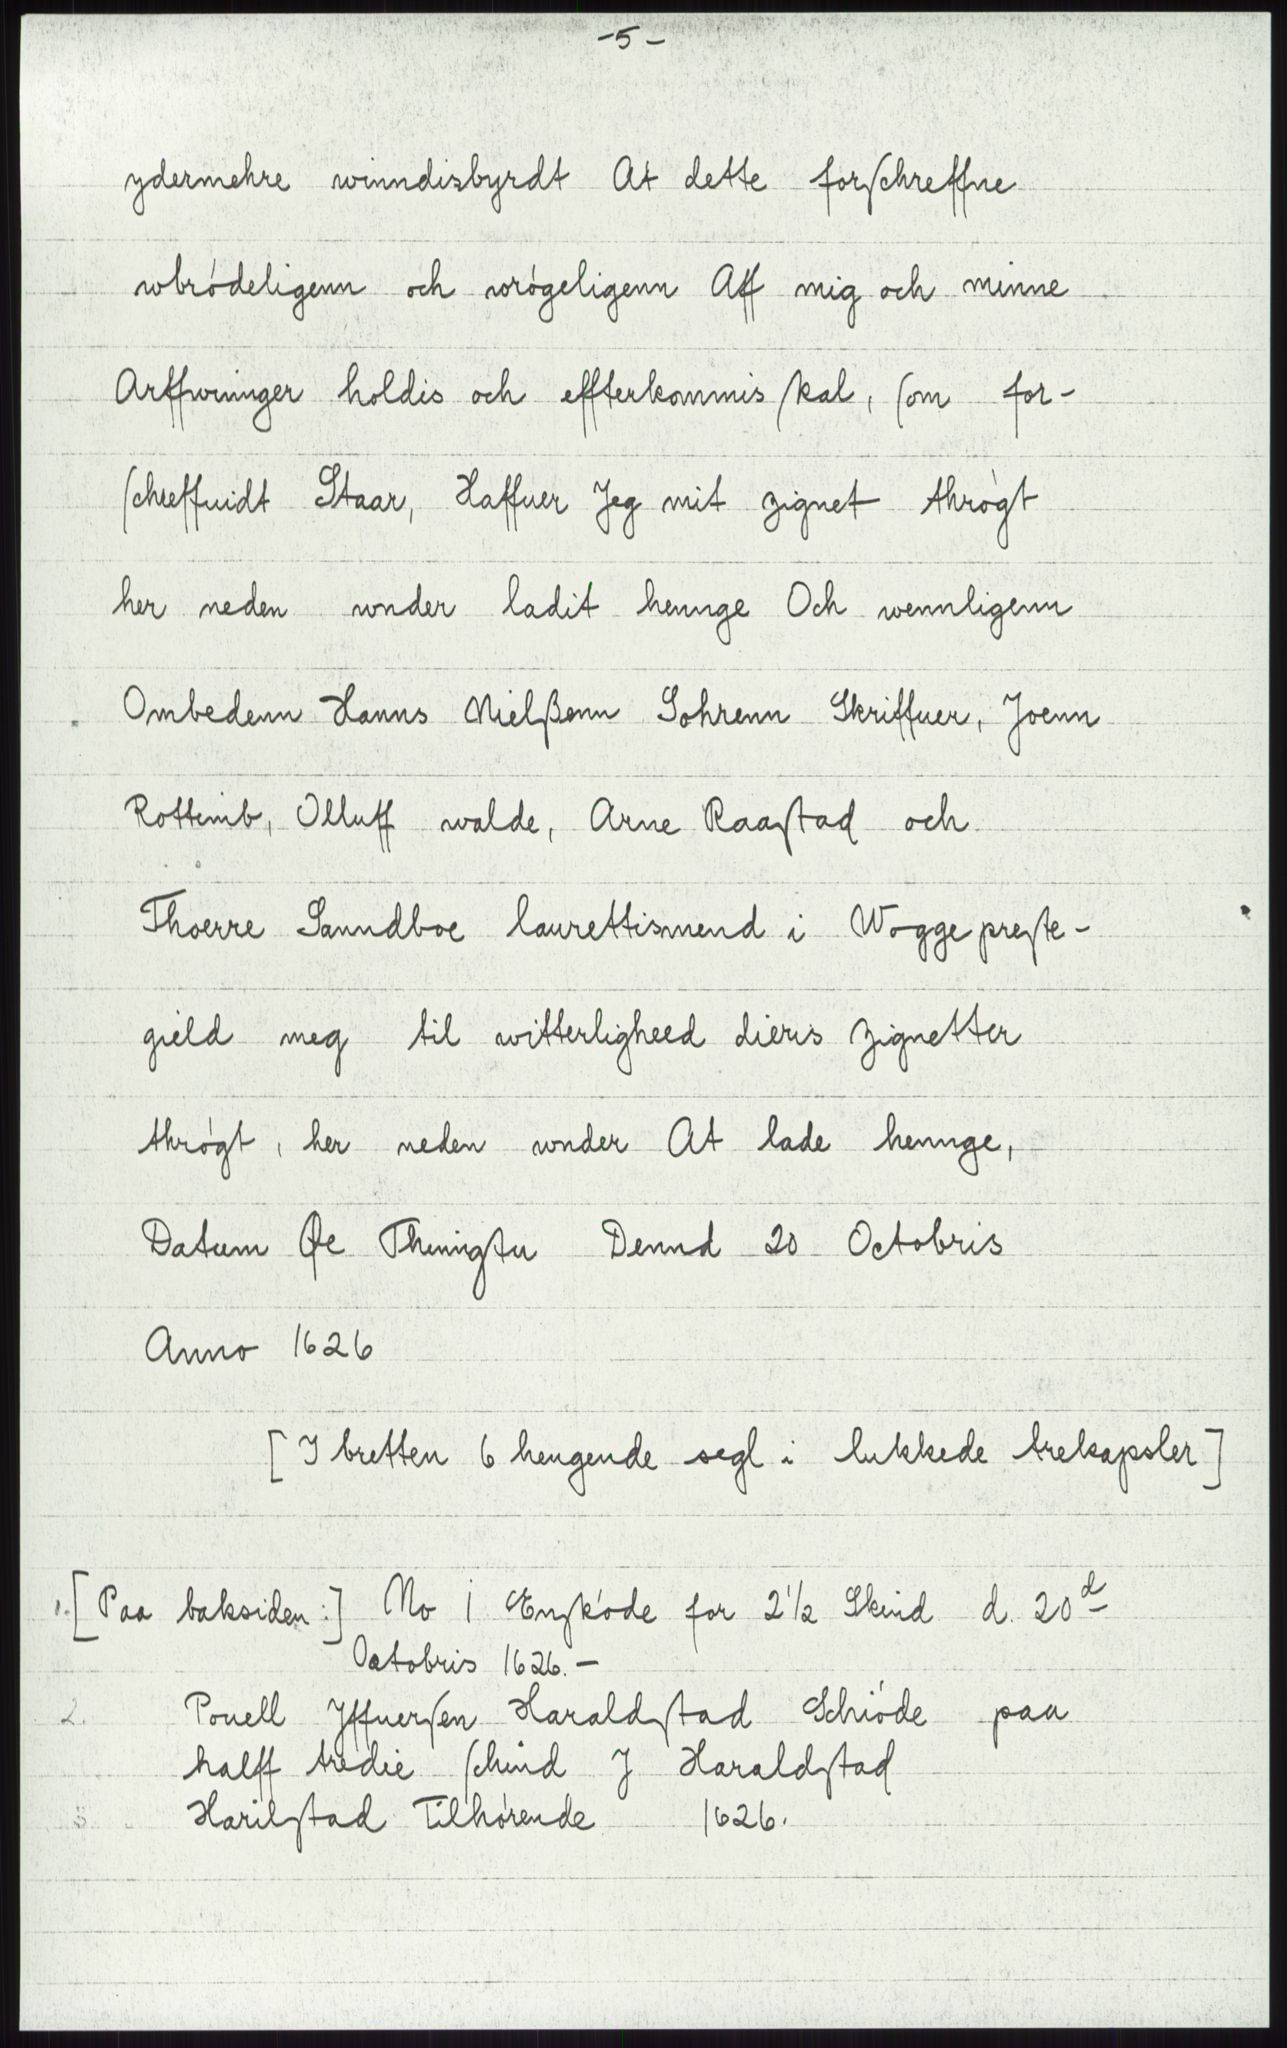 -5-
ydermehre winndisbyrdt At dette forschreffne
wbródeligenn och wrógeligenn Aff mig och minne
Arffwinger holdis och effterkommis skal, som for-
schreffuidt Staar, Haffuer Jeg mit zignet thrógt
her neden wnder ladit hennge Och wennligenn
Ombedenn Hanns Nielßenn Sohrenn Skriffuer, Joenn
Rottemb, Olluff walde, Arne Raastad och
Thoerre Sanndboe laurettismend i Wogge preste-
gield meg til witterligheed dieris zignetter
thrógt, her neden wnder At lade hennge,
Datum Øe Thinngstu Dennd 20 Octobris
Anno 1626
[I bretten 6 hengende segl i lukkede trekapsler]
1. [Paa baksiden:] No 1 Enskóde for 2½ Skind d. 20d
Octobris 1626.-
2. Pouell Iffuersen Haraldstad Schióde paa
halff tredie schind J Haraldstad
3. Harilstad Tilhórende 1626.